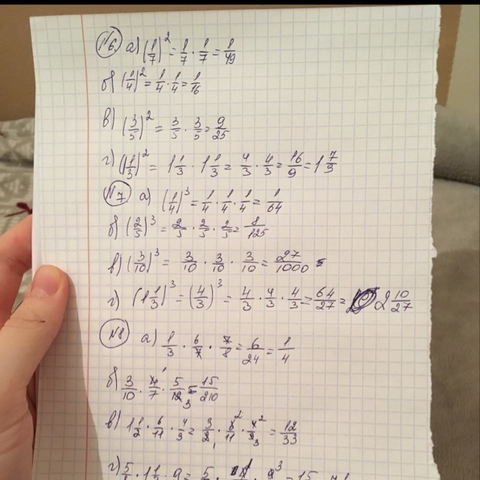 №6. а) (1/7)² = 1/7 · 1/7 = 1/49
б) (1/4)² = 1/4 · 1/4 = 1/16
в) (3/5)² = 3/5 · 3/5 = 9/25
г) (1 1/3)² = 1 1/3 · 1 1/3 = 4/3 · 4/3 = 16/9 = 1 7/9
№7 а) (1/4)³ = 1/4 · 1/4 · 1/4 = 1/64
б) (2/5)³ = 2/5 · 2/5 · 2/5 = 8/125
в) (3/10)³ = 3/10 · 3/10 · 3/10 = 27/1000
г) (1 1/3)³ = (4/3)³ = 4/3 · 4/3 · 4/3 = 64/27 = 2 10/27
№8 а) 1/3 · 6/7 · 7/8 = 6/24 = 1/4
б) 3/10 · 4/7 · 5/12 = 15/210
в) 1 1/2 · 6/11 · 4/3 = 3/2 · 6/11 · 4/3 = 12/33